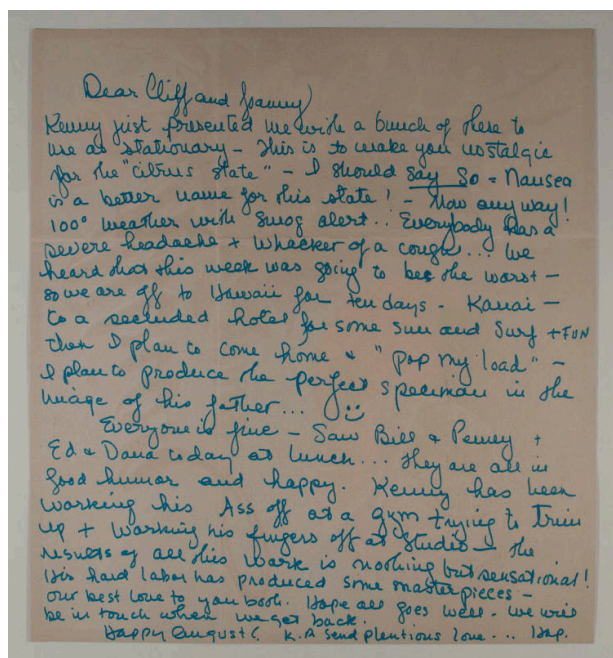 Dear Cliff and Joanny,
Kenny just presented me with a bunch of these to
use as stationary — This is to make you nostalgic
for the "citrus state" — I should say so = Nausea
is a better name for this state! — Now any way!
100° weather with smog alert.. Everybody has a
severe headache + whacker of a cough... We
heard that this week was going to be the worst —
so we are off to Hawaii for ten days - Kauai —
to a secluded hotel for some sun and surf + FUN
then I plan to come home & "pop my load" —
I plan to produce the perfect specimen in the
image of his father... ☺
Everyone is fine — Saw Bill & Penney +
Ed & Dana today at lunch... They are all in
good humor and happy. Kenny has been
working his Ass off at a gym trying to trim
up + working his fingers off at studio — the
results of all this work is nothing but sensational!
His hard labor has produced some masterpieces —
our best love to you both. Hope all goes well. We will
be in touch when we get back.
Happy August K.A send plentious love...